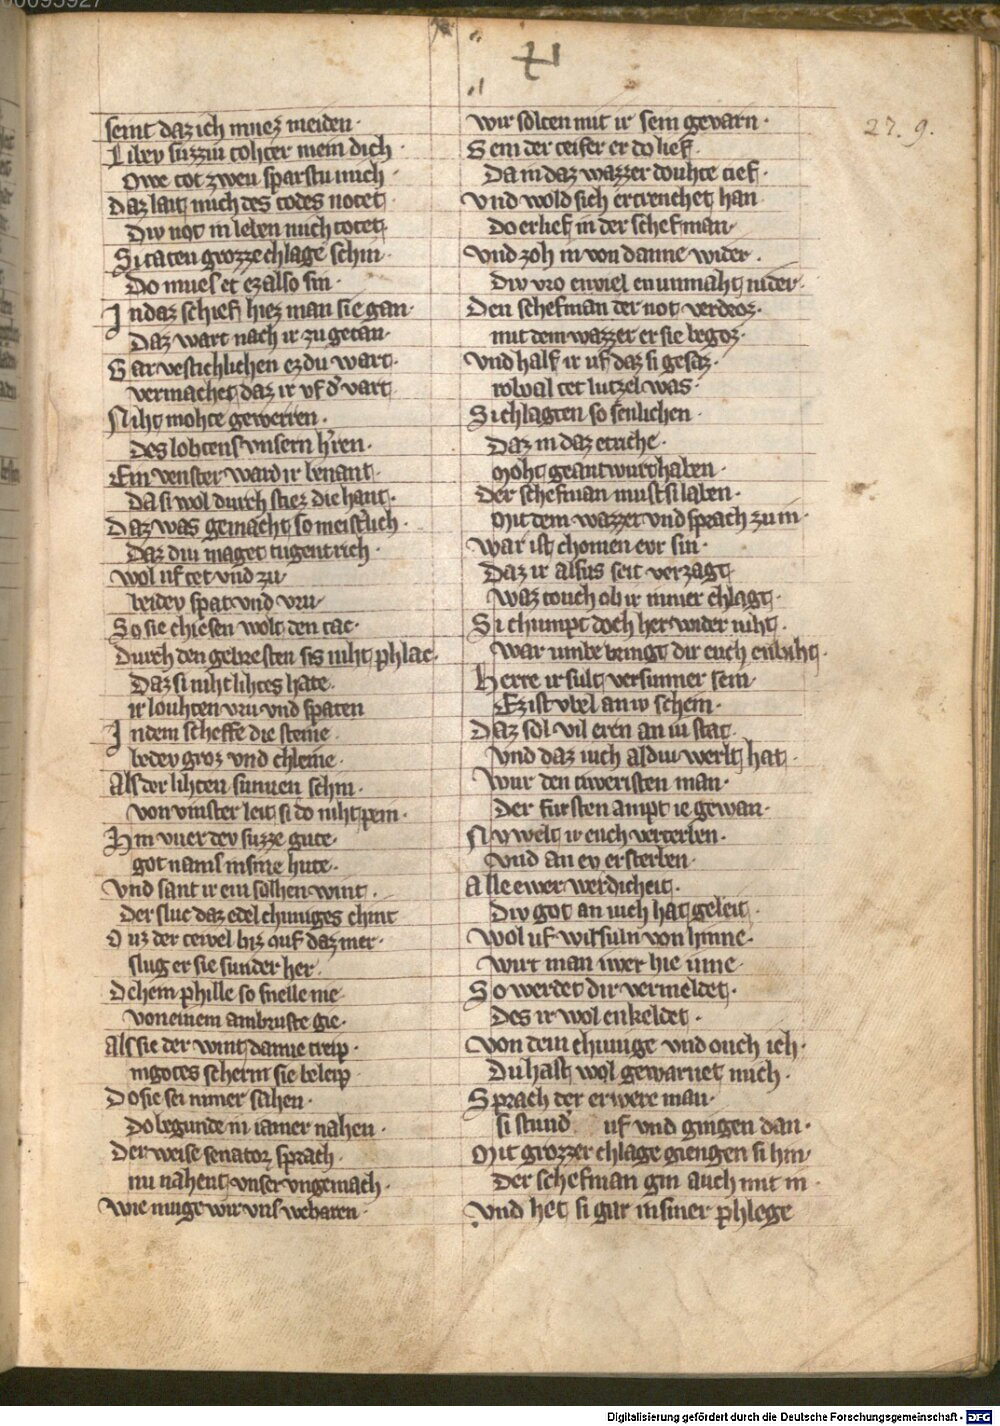 seint daz ich muez meiden·
Libev suzziu tohter mein dich·
Owe tot zweu sparstu mich·
Daz lait mich des todes notet·
Div not in leben mich totet·
Si taten grozze chlage schin·
Do mues et ez also sin·
In daz schief hiez man sie gan·
Daz wart nach ir zu getan·
Gar vestichlichen ez du wart·
vermachet daz ir vf d vart
Niht mohte gewerren·
Des lobtens vnsern hren·
Ein venster ward ir benant·
Da si wol durch stiez die hant·
Daz was gemacht so meistlich·
Daz diu maget tugentrich·
wol uf tet vnd zu
beidev spat vnd vru·
So sie chiesen wolt den tac·
Durch den gebresten sis niht phlac·
Daz si niht lihtes hate·
ir louhten vru vnd spaten
In dem scheffe die steine·
bedev groz vnd chleine·
Als der lihten sunnen schin·
von vinster leit si do niht pein·
Hin vuer dev suzze gute·
got nams in sine hute·
Vnd sant ir ein solhen wint·
Der sluc daz edel chuniges chint
Ouz der tewel biz ouf daz mer·
slug er sie sunder her·
Dehem phille so snelle nie·
von einem ambruste gie·
Als sie der wint danne treip·
in gotes scherm sie beleip·
Do sie sei nimer sahen·
Do begunde in iamer nahen·
Der weise senator sprach·
nu nahent vnser vngemach·
wie muge wir vns webaren·
wir solten mit ir sein gevarn·
Gein der teifer er do lief·
Da in daz wazzer douhte tief·
Vnd wold sich ertrenchet han
Do erlief in der schefman·
Vnd zoh in von danne wider·
Div vro enviel en unmaht nider·
Den schefman der not verdroz·
mit dem wazzer er sie begoz·
Vnd half ir uf daz si gesaz·
Si chlagten so senlichen·
Daz in daz etriche·
Moht geantwurt haben·
Der schefman must si laben·
Mit dem wazzer vnd sprach zu in·
War ist chomen evr sin·
Daz ir alsus seit verzagt
waz touch ob ir immer chlagt·
Si chumpt doch her wider niht·
War umbe bringt dir euch enwiht·
Herre ir sult versunner sein·
Ez ist vbel an iv schein·
Daz sol vil eren an iu stat·
Vnd daz iuch aldiu werlt hat·
wur den tiweristen man·
Der fursten ampt ie gewan·
Nv welt ir euch verterben·
Vnd an ev ersterben·
Alle ewer werdicheit·
Div got an iuch hat geleit·
Wol uf wir suln von hinne·
wirt man iwer hie inne·
So werdet dir vermeldet·
Des ir wol enkeldet·
Von dem chunige vnd ouch ich·
Du hast wol gewarnet mich·
Sprach der erwere man·
si stund uf vnd gingen dan·
Mit grozzer chlage giengen si hin·
Der schefman gin auch mit in·
Vnd het si gar in siner phlege
27. 9.
Digitalisierung gefördert durch die Deutsche Forschungsgemeinschaft - DFG